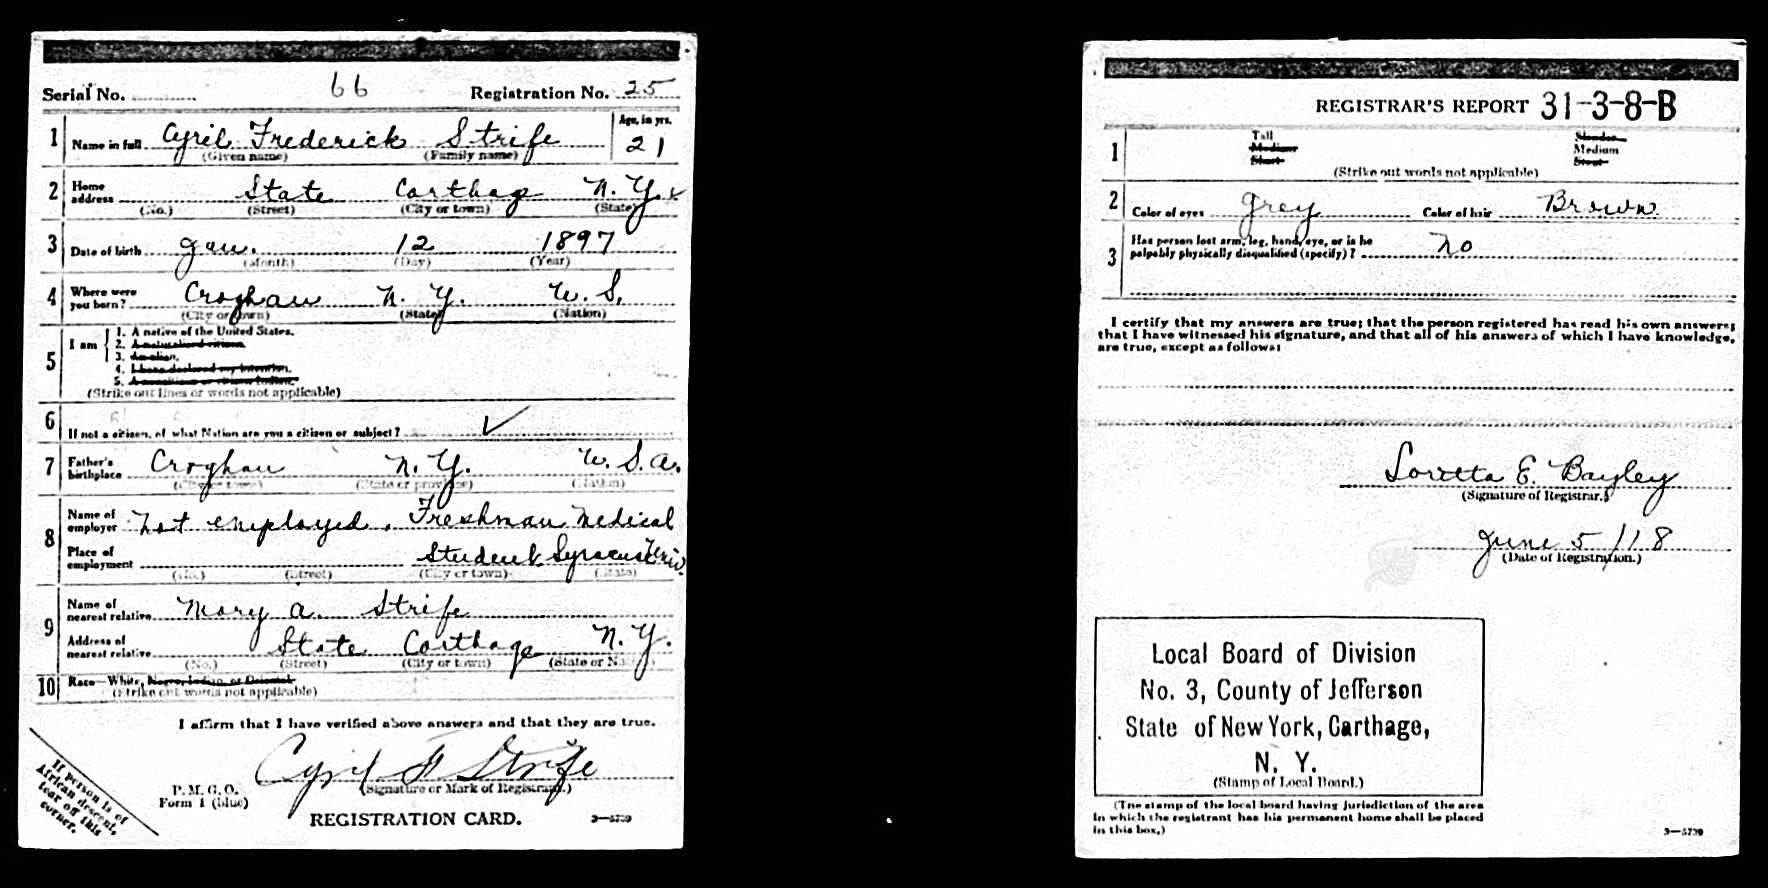 Serial No. 66 Registration No. 25
1 Name in full Cyril Frederick Strife Age, in yrs. 21
(Given name) (Family name)
2 Home address State Carthage N.Y.
(No.) (Street) (City or town) (State)
3 Date of birth Jan. 12 1897
(Month) (Day) (Year)
4 Where were you born? Croghan N. Y. U. S.
(City or town) (State) (Nation)
5 I am
1. A native of the United States.
2. A naturalized citizen.
3. An alien.
4. I have declared my intention.
5. A noncitizen or citizen Indian.
(Strike out lines or words not applicable)
6 If not a citizen, of what Nation are you a citizen or subject? ✓
7 Father's birthplace Croghan N. Y. U. S. A.
(City or town) (State or province) (Nation)
8 Name of employer Not employed. Freshman Medical
Place of employment Student Syracuse Univ.
(No.) (Street) (City or town) (State)
9 Name of nearest relative Mary A. Strife
Address of nearest relative State Carthage N. Y.
(No.) (Street) (City or town) (State or Nation)
10 Race—White, Negro, Indian, or Oriental
(Strike out words not applicable)
I affirm that I have verified above answers and that they are true.
Cyril F Strife
P. M. G. O.
Form 1 (blue)
(Signature or Mark of Registrant.)
REGISTRATION CARD.
3—5739
If person is of
African descent,
tear off this
corner.
REGISTRAR'S REPORT 31-3-8-B
1 Tall Slender
Medium Medium
Short Stout
(Strike out words not applicable)
2 Color of eyes Grey Color of hair Brown
3 Has person lost arm, leg, hand, eye, or is he
palpably physically disqualified (specify)? No
I certify that my answers are true; that the person registered has read his own answers;
that I have witnessed his signature, and that all of his answers of which I have knowledge,
are true, except as follows:
Loretta E. Bayley
(Signature of Registrar.)
June 5/18
(Date of Registration.)
Local Board of Division
No. 3, County of Jefferson
State of New York, Carthage,
N. Y.
(Stamp of Local Board.)
(The stamp of the local board having jurisdiction of the area
in which the registrant has his permanent home shall be placed
in this box.)
3—5739